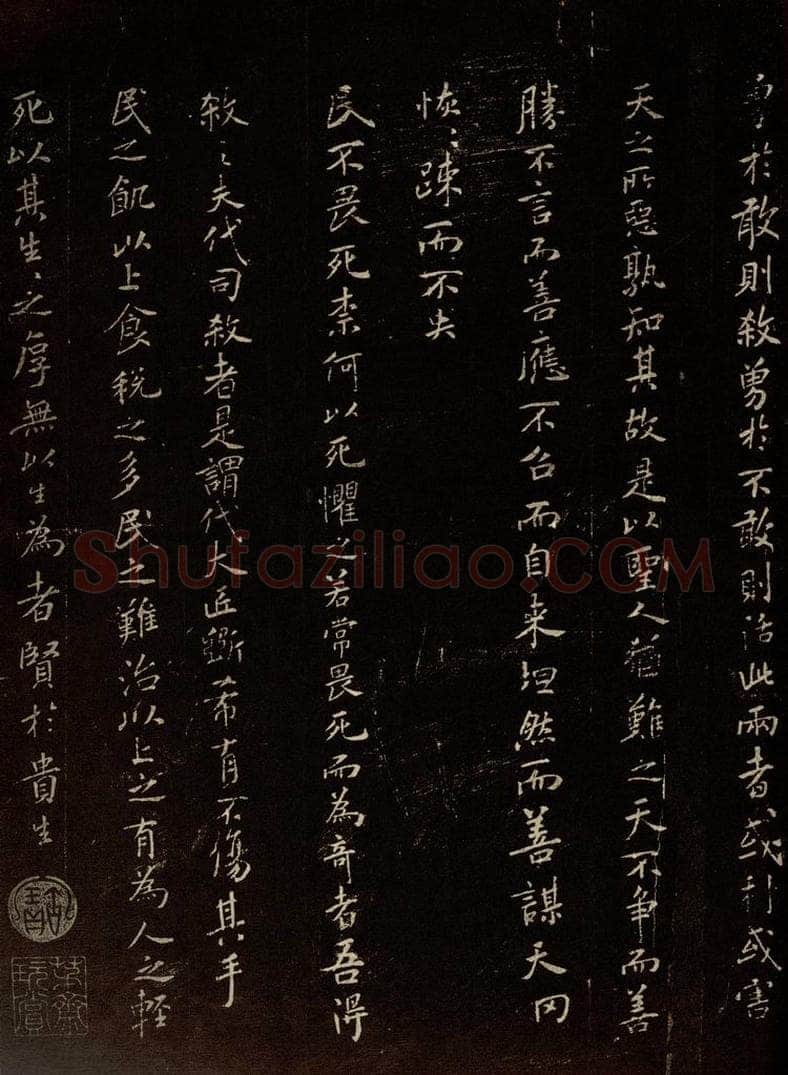 勇於敢則殺勇於不敢則活此兩者或利或害
天之所惡孰知其故是以聖人猶難之天不爭而善
勝不言而善應不召而自来坦然而善謀天网
恢〻踈而不失
民不畏死柰何以死懼之若常畏死而為奇者吾得
殺〻夫代司殺者是謂代大匠斲希有不傷其手
民之飢以上食稅之多民之難治以上之有為人之輕
死以其生〻之厚無以生為者賢於貴生
Shufaziliao.COM